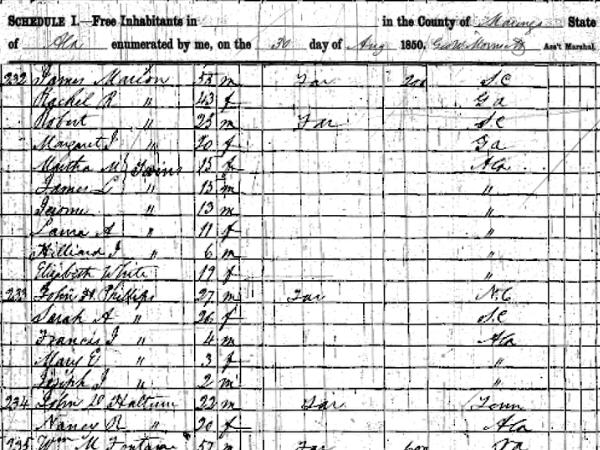 SCHEDULE I.—Free Inhabitants in in the County of Marengo State
of Ala enumerated by me, on the 30 day of Aug 1850. Ass't Marshal.
232 James Marion 53 m Far 200 S.C
Rachel R " 43 f Ga
Robert " 23 m Far S.C
Margaret J " 20 f Ga
Martha M " Twins 15 f Ala
James L " 15 m "
Jerome " 13 m "
Laura A " 11 f "
Hilliard J " 6 m "
Elizabeth White 19 f "
233 John H Phillips 27 m Far N.C
Sarah A " 26 f S.C
Francis J " 4 m Ala
Mary E " 3 f "
Joseph J " 2 m "
234 John D Haltum 22 m Far Tenn
Nancy R " 20 f Ala
235 Wm M Fontaine 57 m Far 600 Va